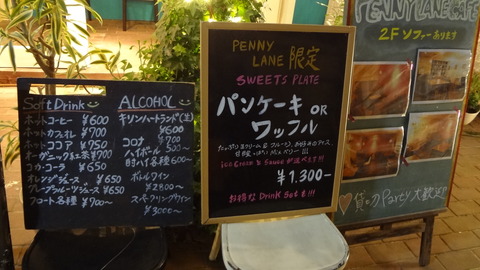 Soft Drink
ホットコーヒー ¥600
ホットカフェオレ ¥700
ホットココア ¥750
オーガニック紅茶 ¥700
コカ・コーラ ¥650
オレンジジュース ¥650
グレープフルーツジュース ¥650
フロート各種 ¥700〜
ALCOHOL
キリンハートランド(生)
¥600
コロナ ¥700
ハイボール 500〜
酎ハイ各種 600〜
ボトルワイン
¥2800〜
スパークリングワイン
¥3000〜
PENNY
LANE 限定
SWEETS PLATE
パンケーキ OR
ワッフル
Ice Cream と Sauce が選べます!!!
¥1.300-
お得な Drink Set も!!!
PENNY LANE CAFE
2F ソファーあります
貸切 Party 大歓迎!